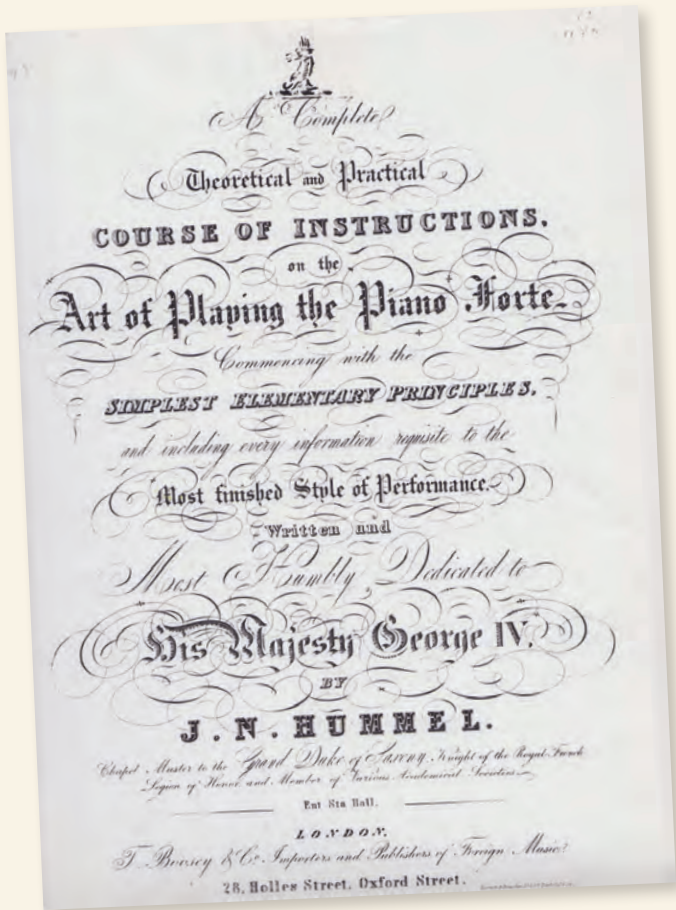 A Complete
Theoretical and Practical
COURSE OF INSTRUCTIONS.
on the
Art of Playing the Piano Forte.
Commencing with the
SIMPLEST ELEMENTARY PRINCIPLES,
and including every information requisite to the
Most finished Style of Performance.
Written and
Most Humbly Dedicated to
His Majesty George IV.
BY
J. N. HUMMEL.
Chapel Master to the Grand Duke of Saxony, Knight of the Royal French
Legion of Honor, and Member of Various Academical Societies.
Ent Sta Hall.
LONDON,
T. Boosey & Co. Importers and Publishers of Foreign Music
28, Holles Street, Oxford Street.